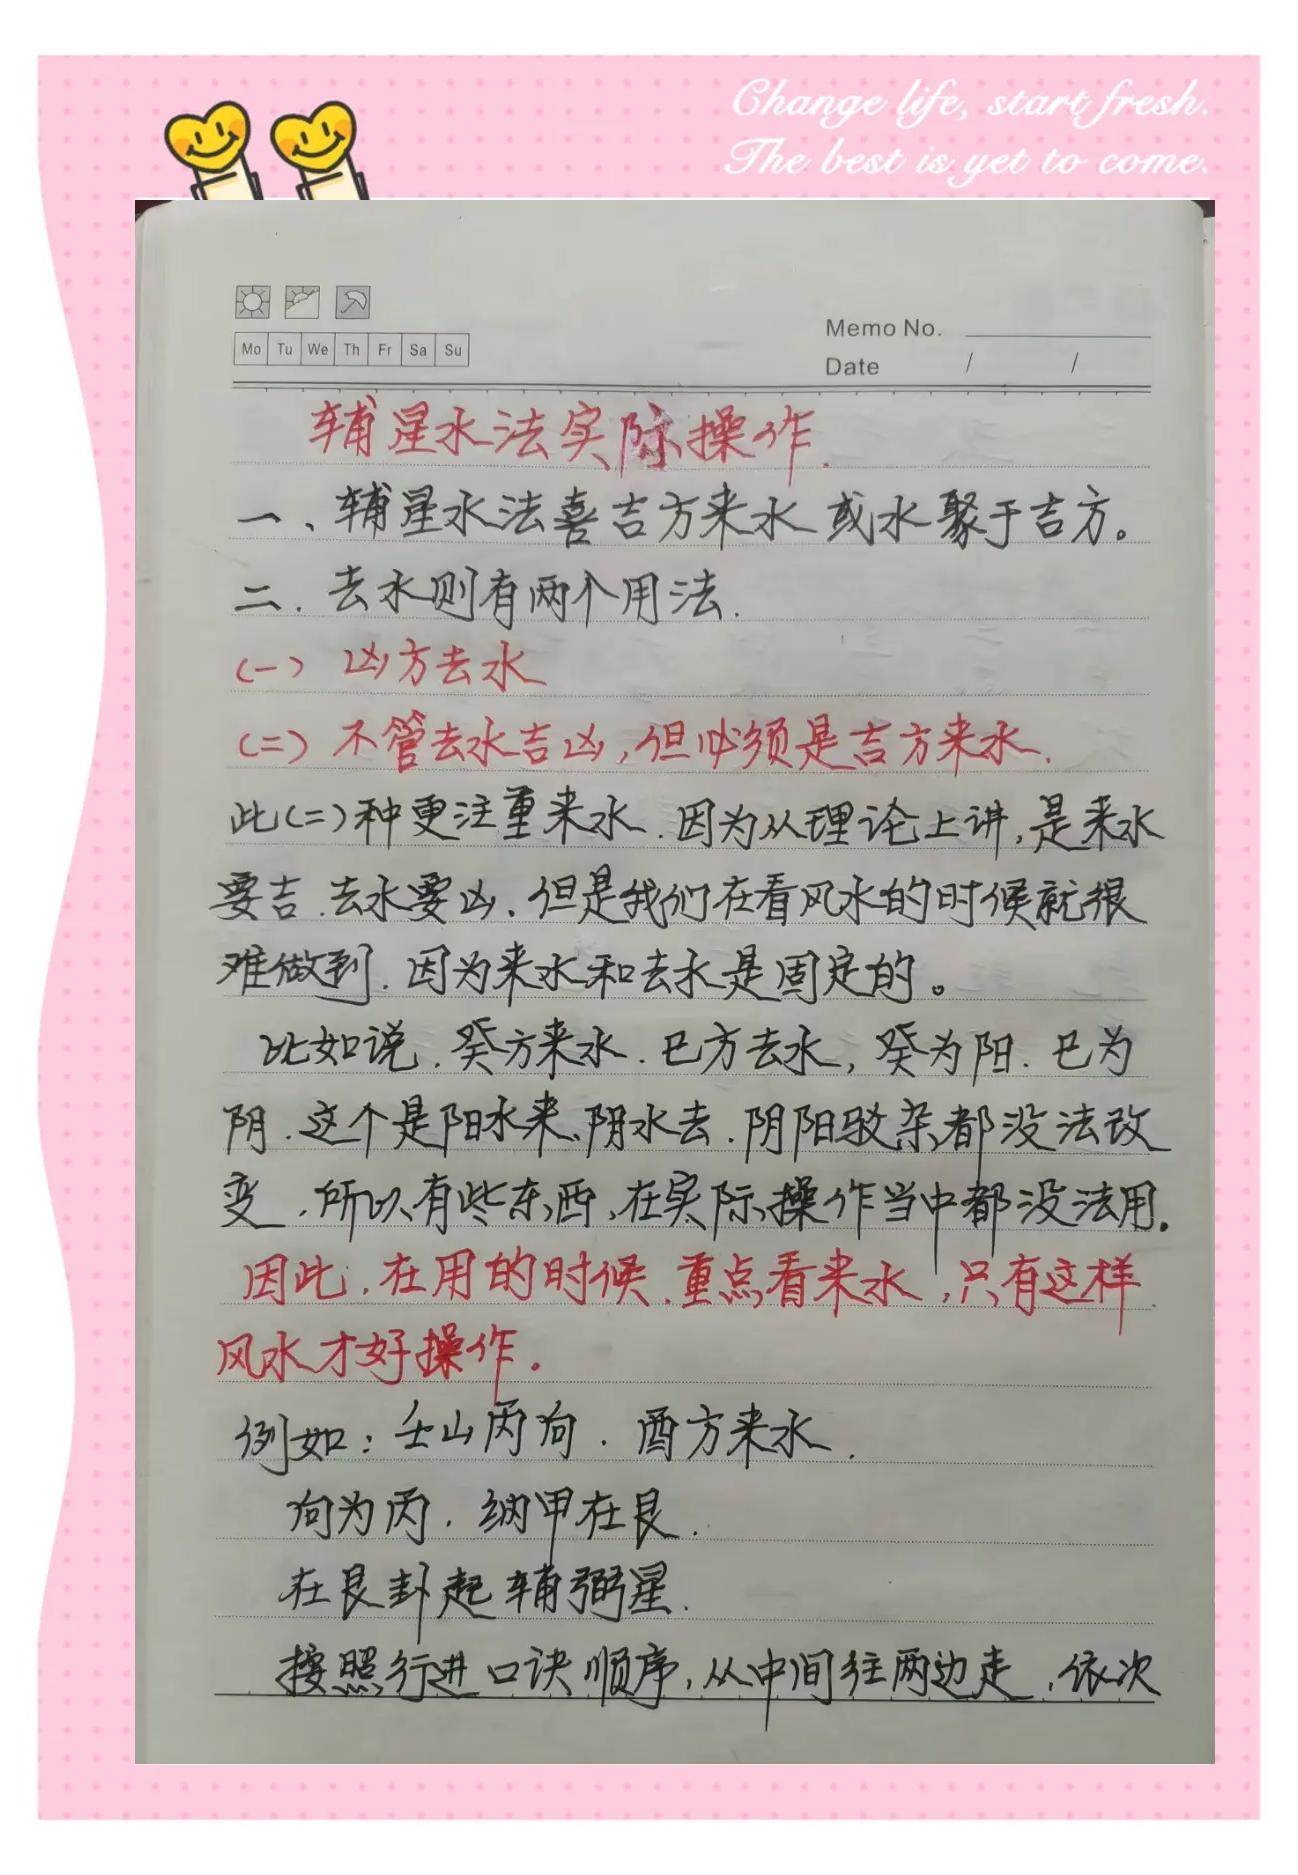 Change life, start fresh.
The best is yet to come.
Mo Tu We Th Fr Sa Su
Memo No.
Date / /
辅星水法实际操作.
一、辅星水法喜吉方来水或水聚于吉方。
二.去水则有两个用法.
(一) 凶方去水
(二) 不管去水吉凶,但必须是吉方来水.
此(二)种更注重来水.因为从理论上讲,是来水
要吉.去水要凶、但是我们在看风水的时候就很
难做到.因为来水和去水是固定的。
比如说.癸方来水.巳方去水,癸为阳.巳为
阴.这个是阳水来、阴水去.阴阳驳杂都没法改
变.所以有些东西,在实际操作当中都没法用。
因此.在用的时候.重点看来水,只有这样.
风水才好操作。
例如:壬山丙向.酉方来水.
向为丙.纳甲在艮.
在艮卦起辅弼星.
按照行进口诀顺序,从中间往两边走.依次